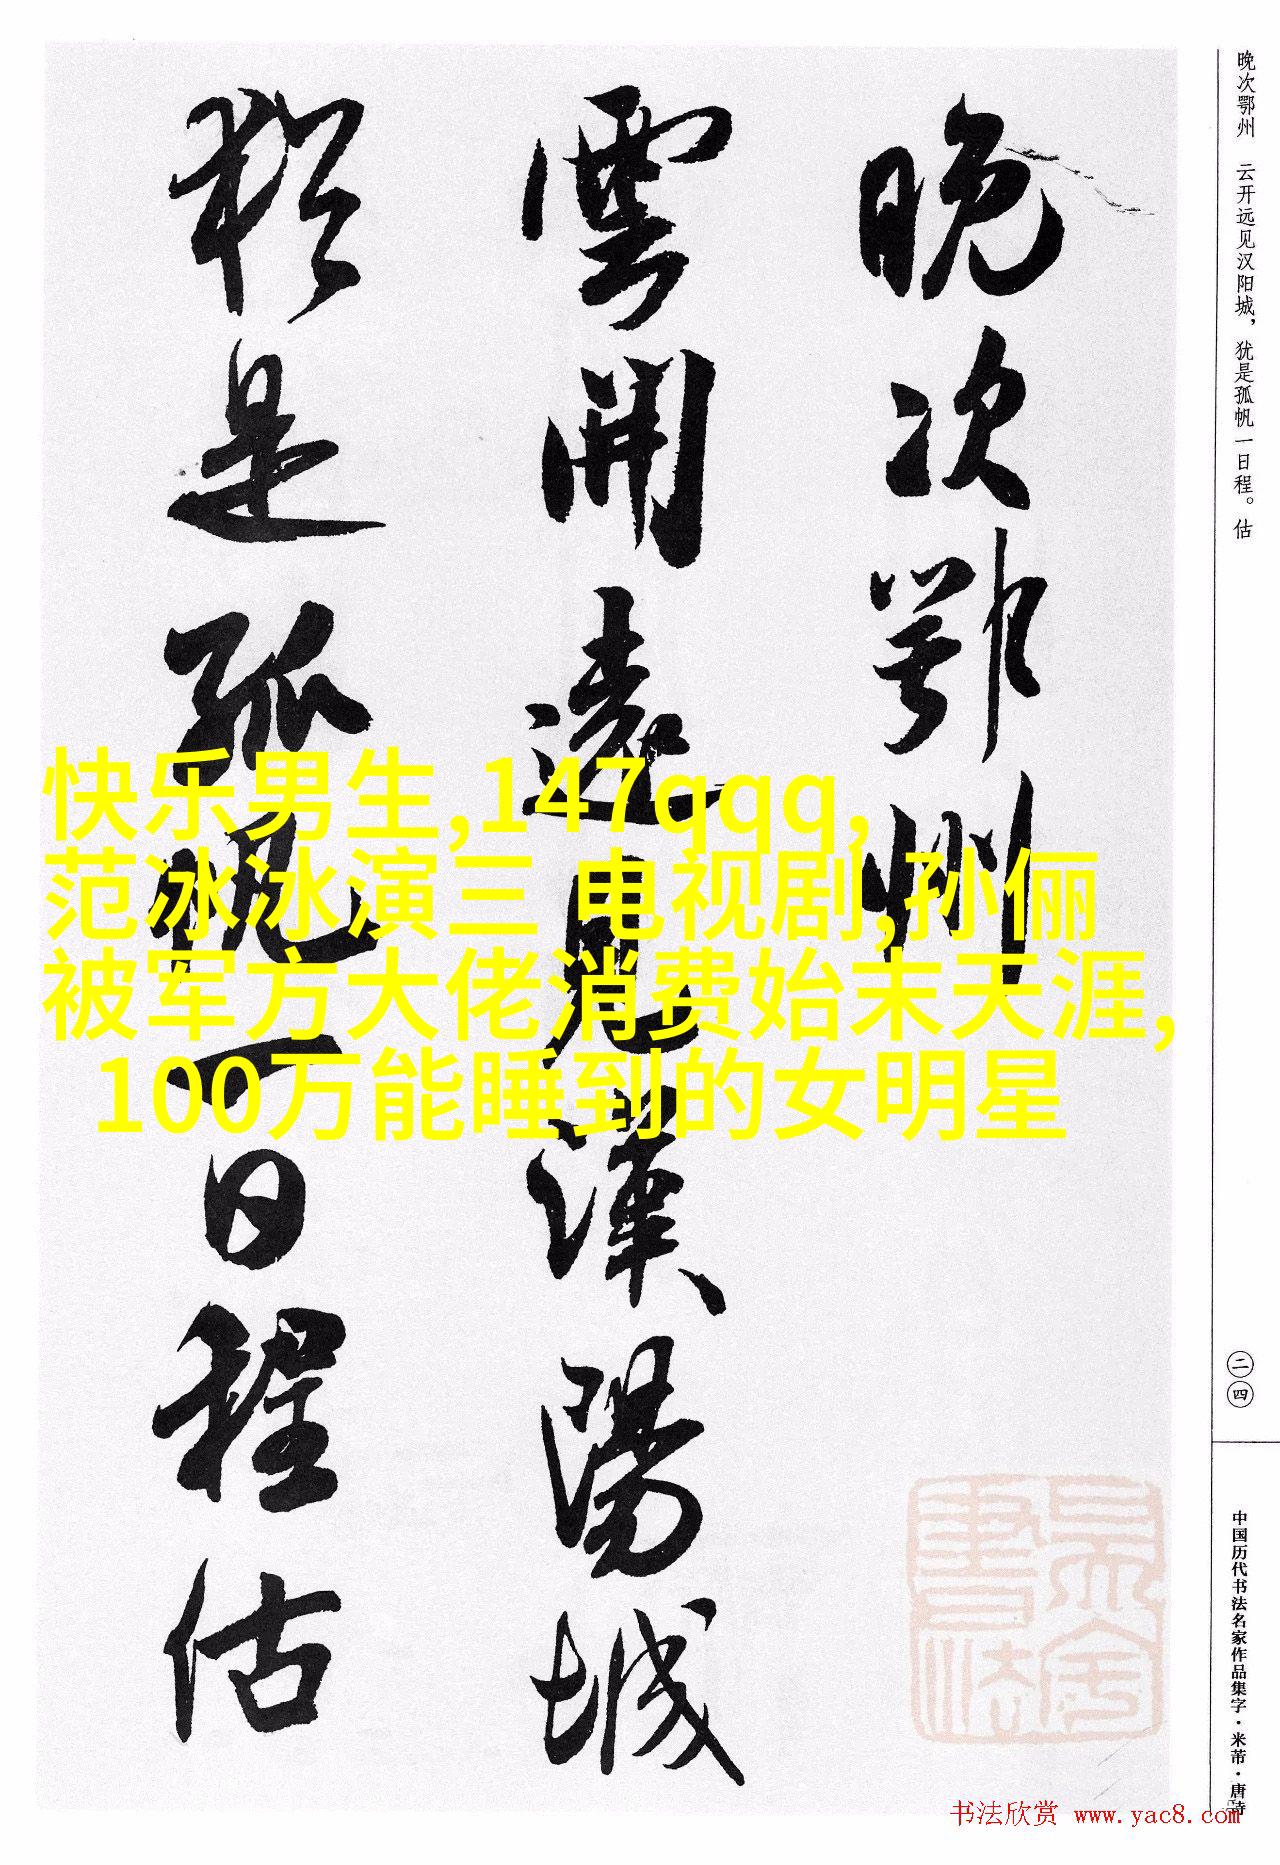 晚次鄂州
雲開遠見漢陽城
猶是孤帆一日程估
晚次鄂州　云开远见汉阳城，犹是孤帆一日程。估
二四
中国历代书法名家作品集字·米芾·唐诗
快乐男生,147qqq,
范冰冰演三 电视剧,孙俪
被军方大佬消费始末天涯,
100万能睡到的女明星
书法欣赏 www.yac8.com